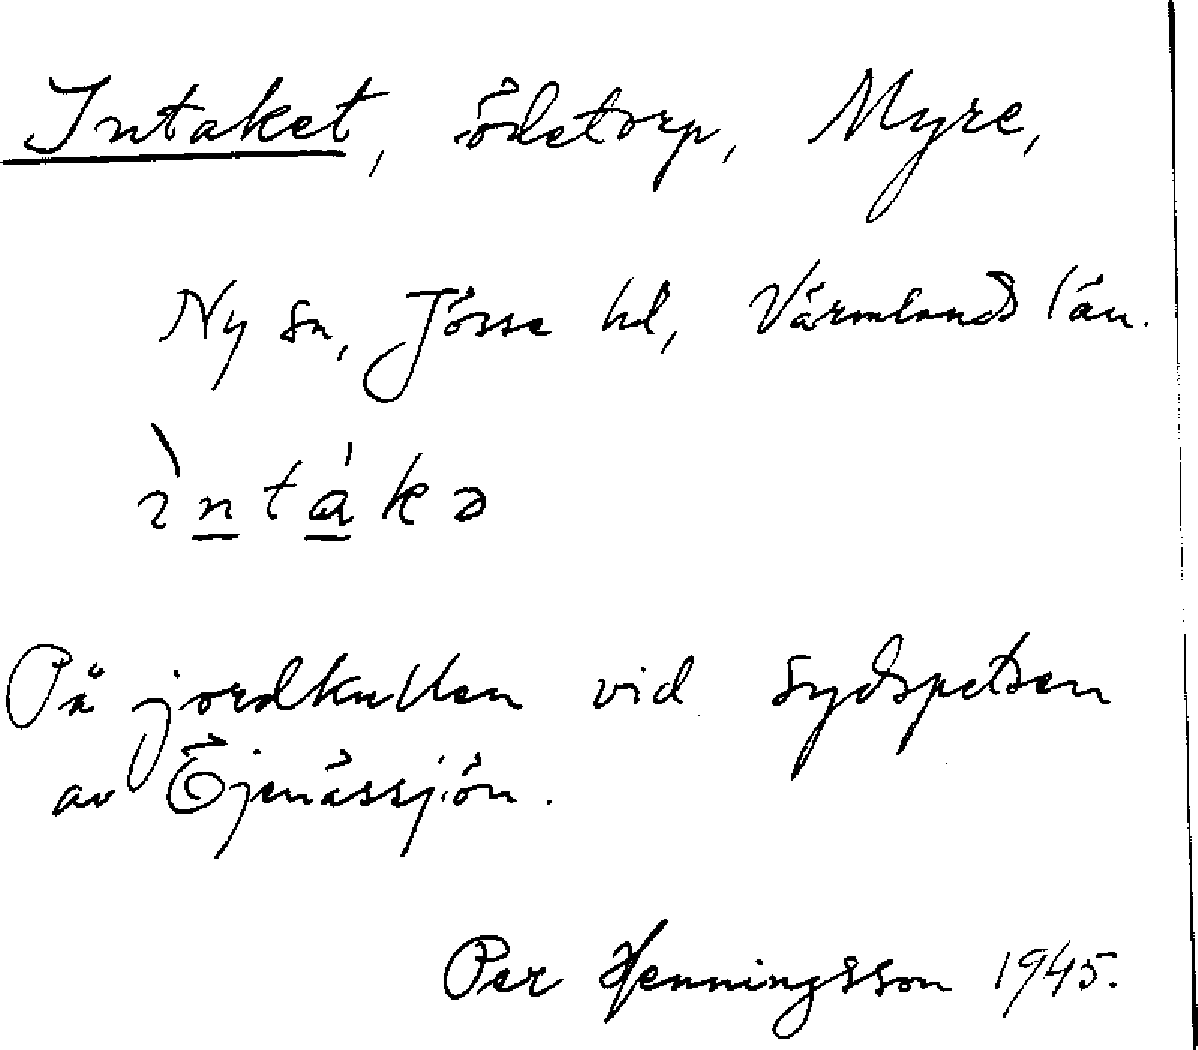 Intaket, ödetorp, Myre,
Ny sn, Jösse hd, Värmlands län.
ìntákə
På jordkullen vid sydspetsen
av Öjenässjön.
Per Henningsson 1945.